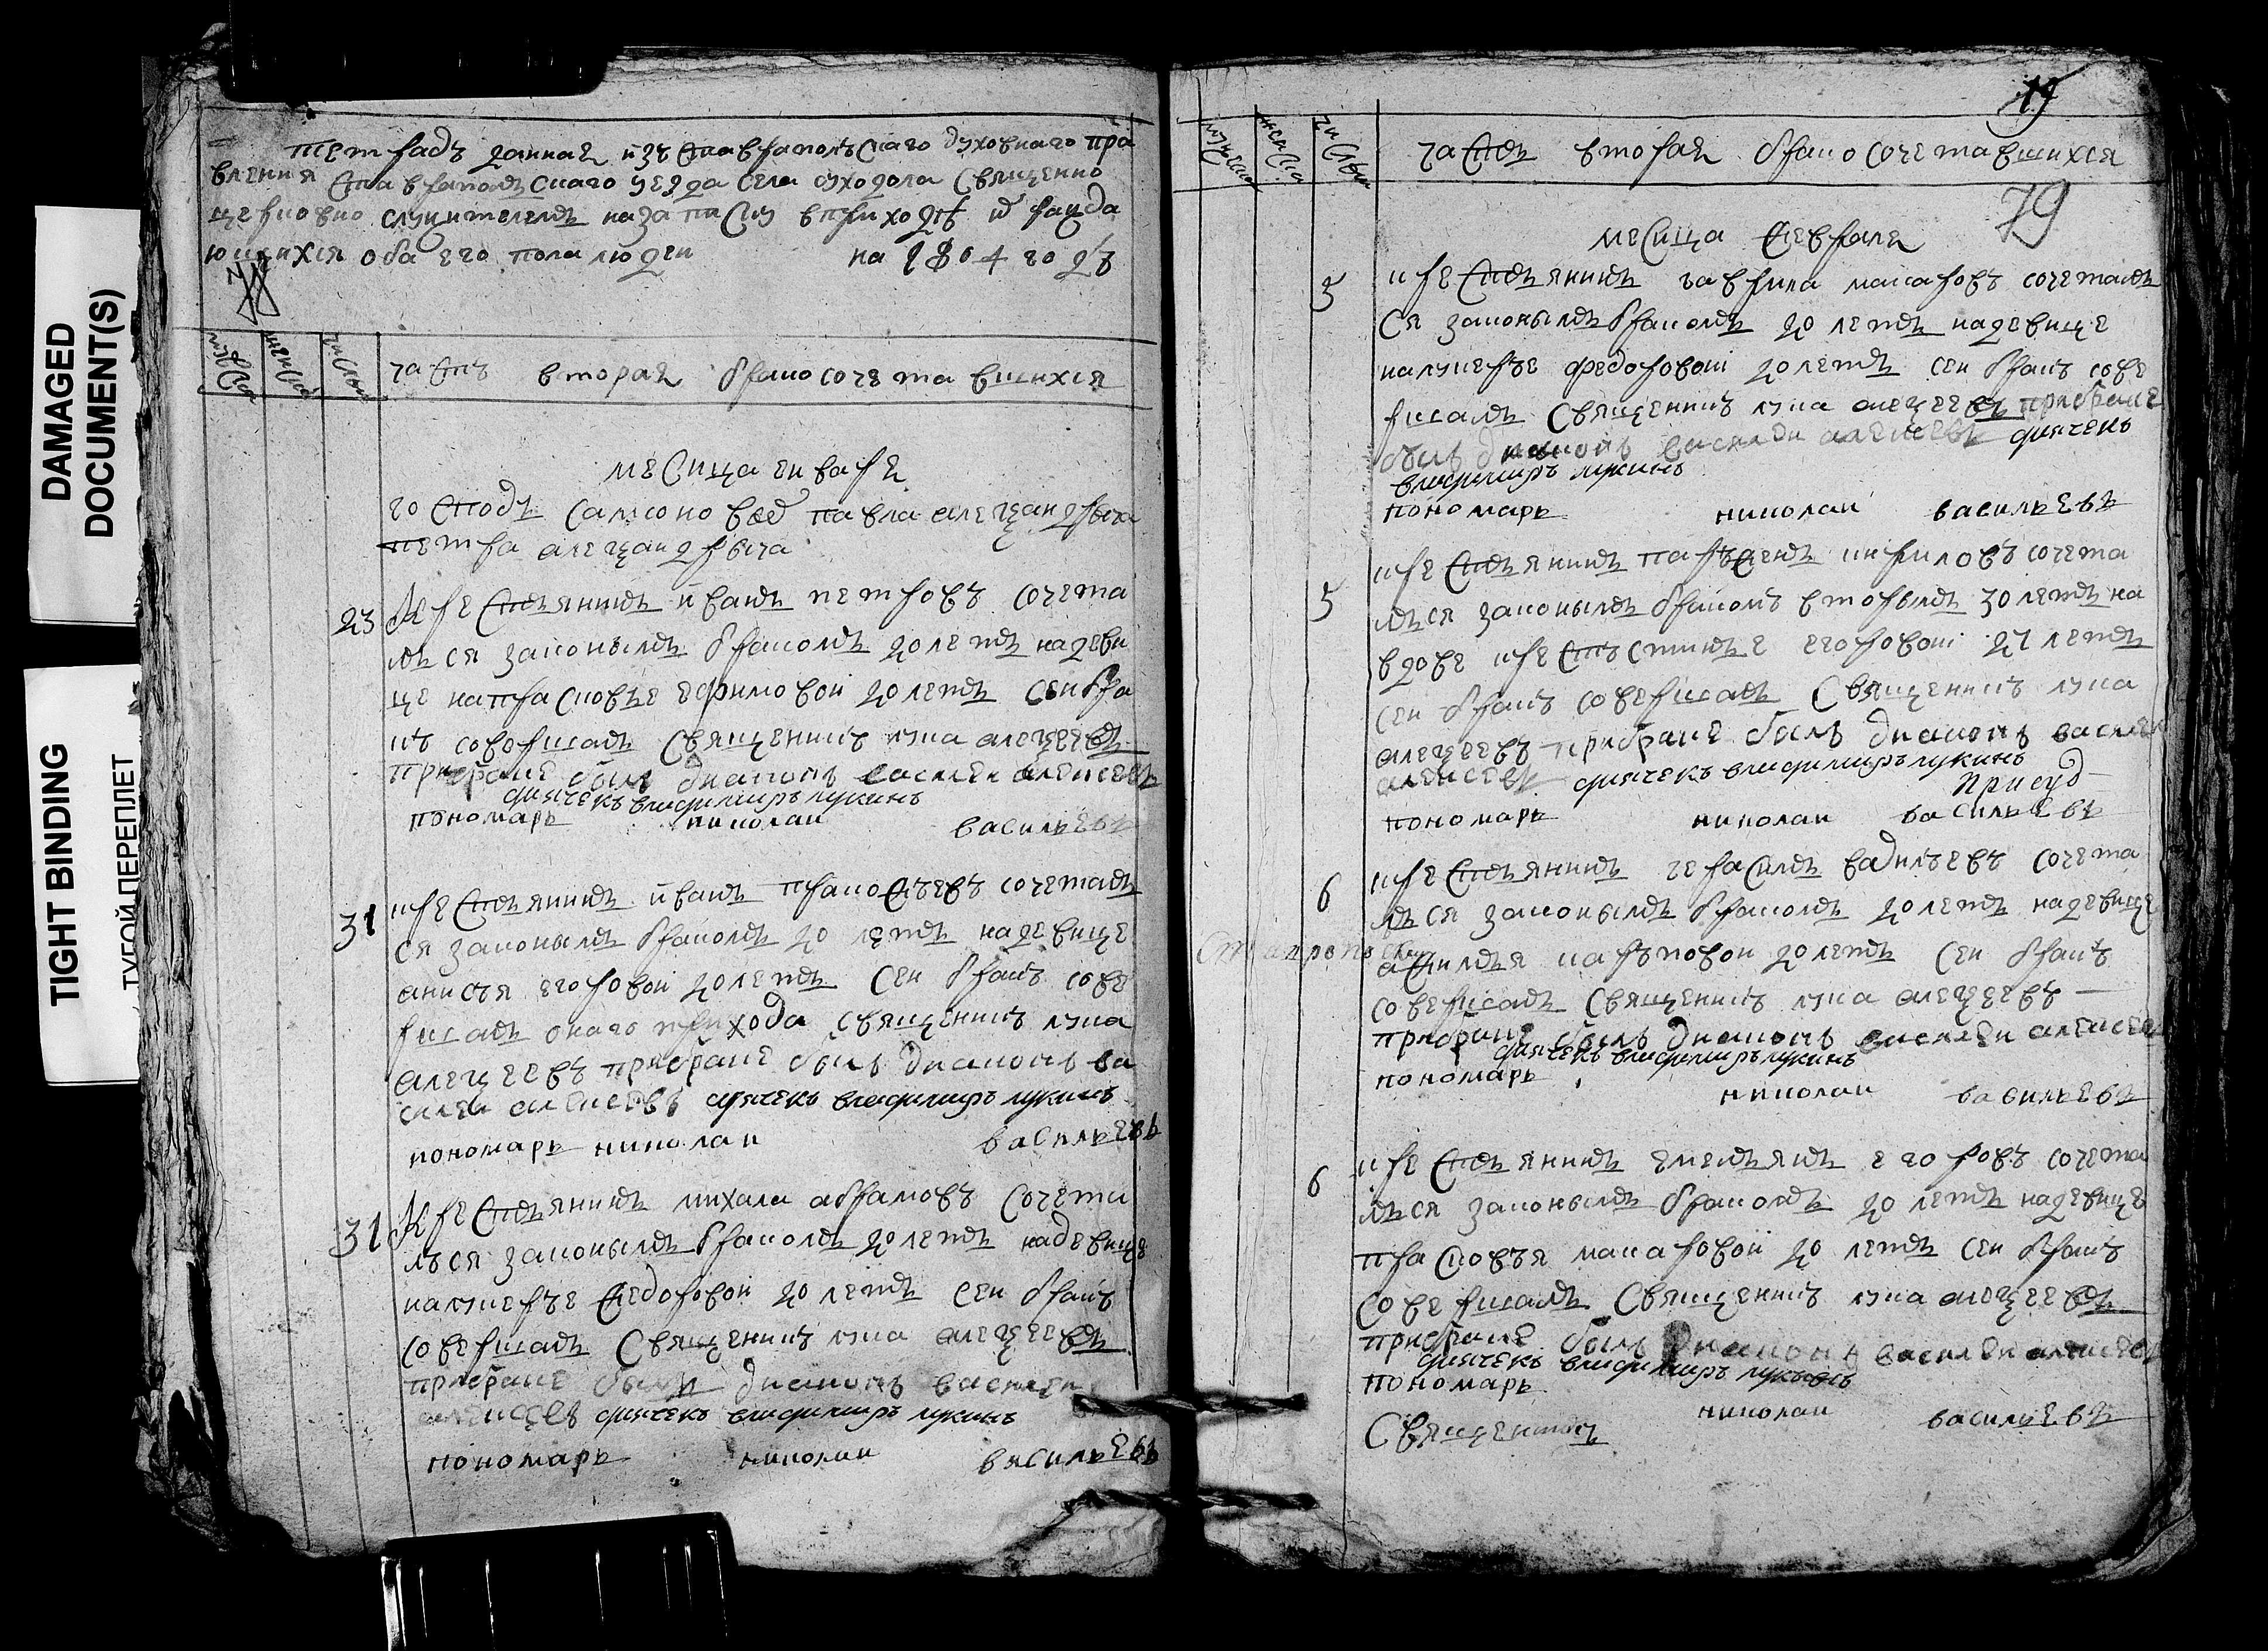 DAMAGED
DOCUMENT(S)
TIGHT BINDING
ТУГОЙ ПЕРЕПЛЕТ
тетрадь данная изъ ставрапольскаго духовнаго пра
вления ставрапольскаго уезда села сухо­дола священно
церковно служителемъ на записку в приходѣ о ражда
ющихся оба его пола людеи на 1804 годъ
числы
часть вторая брако сочетавшихся
месица енваря
господъ самсоновъ павла алеѯандрыча
петра алеѯандрыча
23 Крестьянинъ иванъ петровъ сочета
лься законымъ бракомъ 20 летъ на деви
це на праскове ефимовой 20 летъ сеи бра
къ соворшалъ священникъ лука алеѯеевъ
при браке былъ диаконъ василеи алексеевъ
дьячекъ владимиръ лукинъ
пономарь николаи васильевъ
31 крестьянинъ иванъ пракофьевъ сочеталь
ся законымъ бракомъ 20 летъ на девице
анисья егоровой 20 летъ сеи бракъ сове
ршалъ онаго прихода священикъ лука
алеѯеевъ при браке былъ диаконъ ва
силеи алексеевъ дьячекъ владимиръ лукинъ
пономарь николаи васильевъ
31 Крестьянинъ михаила абрамовъ сочета
лься законымъ бракомъ 20 летъ на девице
на лукерье федоровой 20 летъ сеи бракъ
совершалъ священикъ лука алеѯеевъ
при браке былъ диаконъ василеи
алексеевъ дьячекъ владимиръ лукинъ
пономарь николаи васильевъ
79
числы
часть вторая брако сочетавшихся
79
месица февраля
5 крестьянинъ гаврила макаровъ сочеталь
ся законымъ бракомъ 20 летъ на девице
на лукерье федоровой 20 летъ сеи бракъ сове
ршалъ священникъ лука алеѯеевъ при браке
былъ диаконъ василеи алексеевъ дьячекъ
владимиръ лукинъ
пономарь николаи васильевъ
5 крестьянинъ парфенъ кириловъ сочета
лься законымъ бракомъ вторымъ 30 летъ на
вдове крестьстинье егоровой 27 летъ
сеи бракъ совершалъ священикъ лука
алеѯеевъ при браке былъ диаконъ василеи
алексеевъ дьячекъ владимиръ лукинъ
пономарь николаи васильевъ
6 крестьянинъ герасимъ вадильевъ сочета
лься законымъ бракомъ 20 летъ на девице
афимья карповой 20 летъ сеи бракъ
совершалъ священикъ лука алеѯеевъ
при браке былъ диаконъ василеи алексеевъ
дьячекъ владимиръ лукинъ
пономарь николаи васильевъ
6 крестьянинъ емельянъ егоровъ сочета
лься законымъ бракомъ 20 летъ на девице
прасковья макаровой 20 летъ сеи бракъ
совершалъ священникъ лука алеѯеевъ
при браке былъ диаконъ василеи алексеевъ
дьячекъ владимиръ лукинъ
пономарь николаи васильевъ